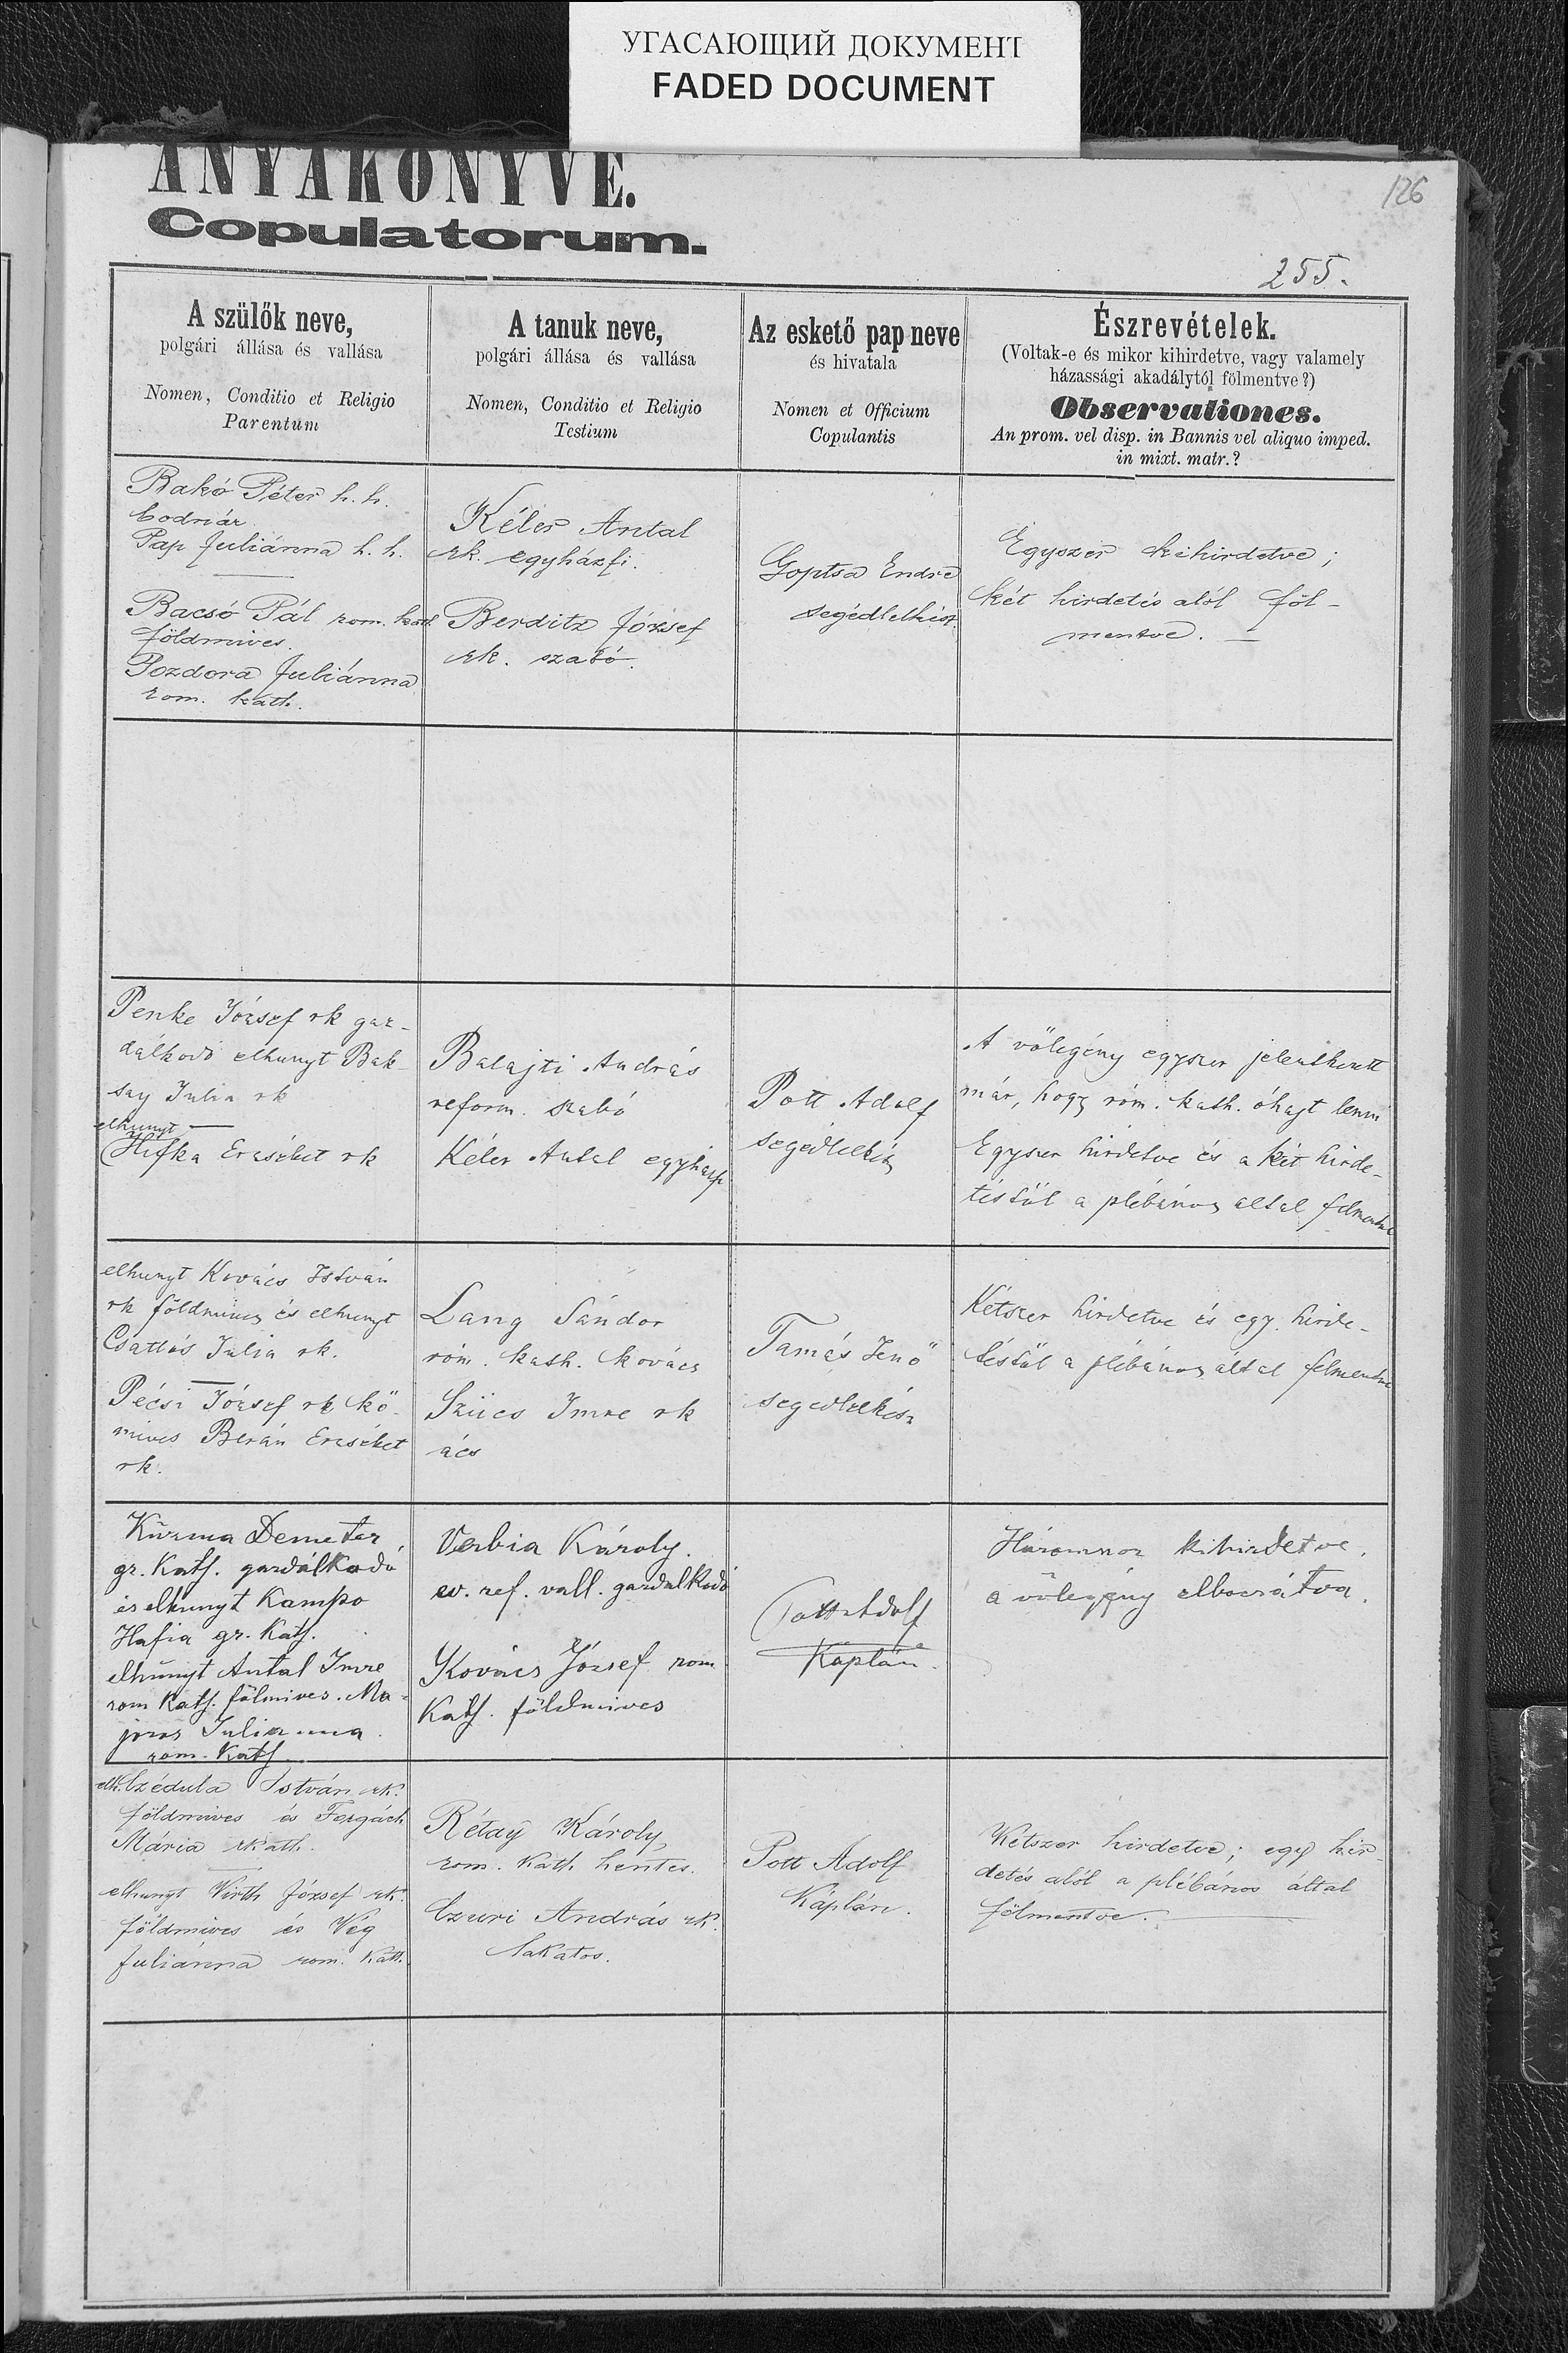 УГАСАЮЩИЙ ДОКУМЕНТ
FADED DOCUMENT
ANYAKÖNYVE.
Copulatorum.
126
255.
A szülők neve,
polgári állása és vallása
Nomen, Conditio et Religio
Parentum
A tanuk neve,
polgári állása és vallása
Nomen, Conditio et Religio
Testium
Az eskető pap neve
és hivatala
Nomen et Officium
Copulantis
Észrevételek.
(Voltak-e és mikor kihirdetve, vagy valamely
házassági akadálytól fölmentve?)
Observationes.
An prom. vel disp. in Bannis vel aliquo imped.
in mixt. matr.?
Bakó Péter h. h.
Pap Juliánna h. h.
Bacsó Pál rom. kath
földmives.
Pozdora Juliánna
rom. kath.
Kéler Antal
rk. egyházfi.
Berditz József
rk. szabó.
Goptsa Endre
segédlelkész
Egyszer kihirdetve;
két hirdetés alól föl-
mentve. —
Penke József rk gaz-
dálkodó elhunyt Bak-
say Julia rk
elhunyt —
Hifka Erzsébet rk
Balajti András
reform. szabó
Kéler Antal egyházfi
Pott Adolf
segédlelkész
A völegény egyszer jelentkezett
már, hogy róm. kath. óhajt lenni
Egyszer hirdetve és a két hirde-
téstöl a plébános által felmentve
elhunyt Kovács István
rk földmives és elhunyt
Csatlós Julia rk.
Pécsi József rk kö-
mives Berán Erzsébet
rk.
Lang Sándor
róm. kath. kovács
Szücs Imre rk
ács
Tamás Jenö
segedlelkész
Kétszer hirdetve és egy hirde-
téstöl a plébános által felmentve
Kuzma Demeter
gr. Kath. gazdálkodó
és elhunyt Kampo
Hafia gr. Kath.
elhunyt Antal Imre
rom Kath. fölmives. Ma-
joros Julianna
rom. Kath
Verbia Károly.
ev. ref. vall. gazdalkodó
Kovács József rom
Kath. földmives
Pott Adolf
Káplán.
Háromszor kihirdetve,
a völegény elbocsátva.
elh. Czédula István rk.
földmives és Forgách
Mária rkath.
elhunyt Virth József rk.
földmives és Vég
Juliánna rom. Kath.
Rétay Károly,
rom. kath. hentes.
Czuri András rk.
lakatos.
Pott Adolf
Káplán.
Kétszer hirdetve; egy hir-
detés alól a plébános által
fölmentve. —